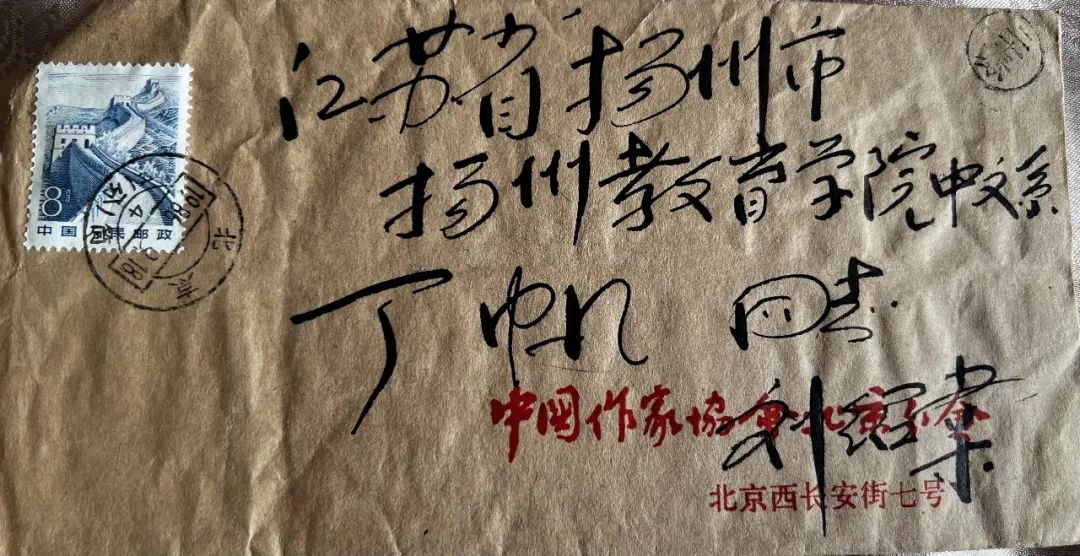 江苏省扬州市
扬州教育学院中文系
丁帆 同志
刘绍棠
中国作家协会北京分会
北京西长安街七号
8
中国人民邮政
北京